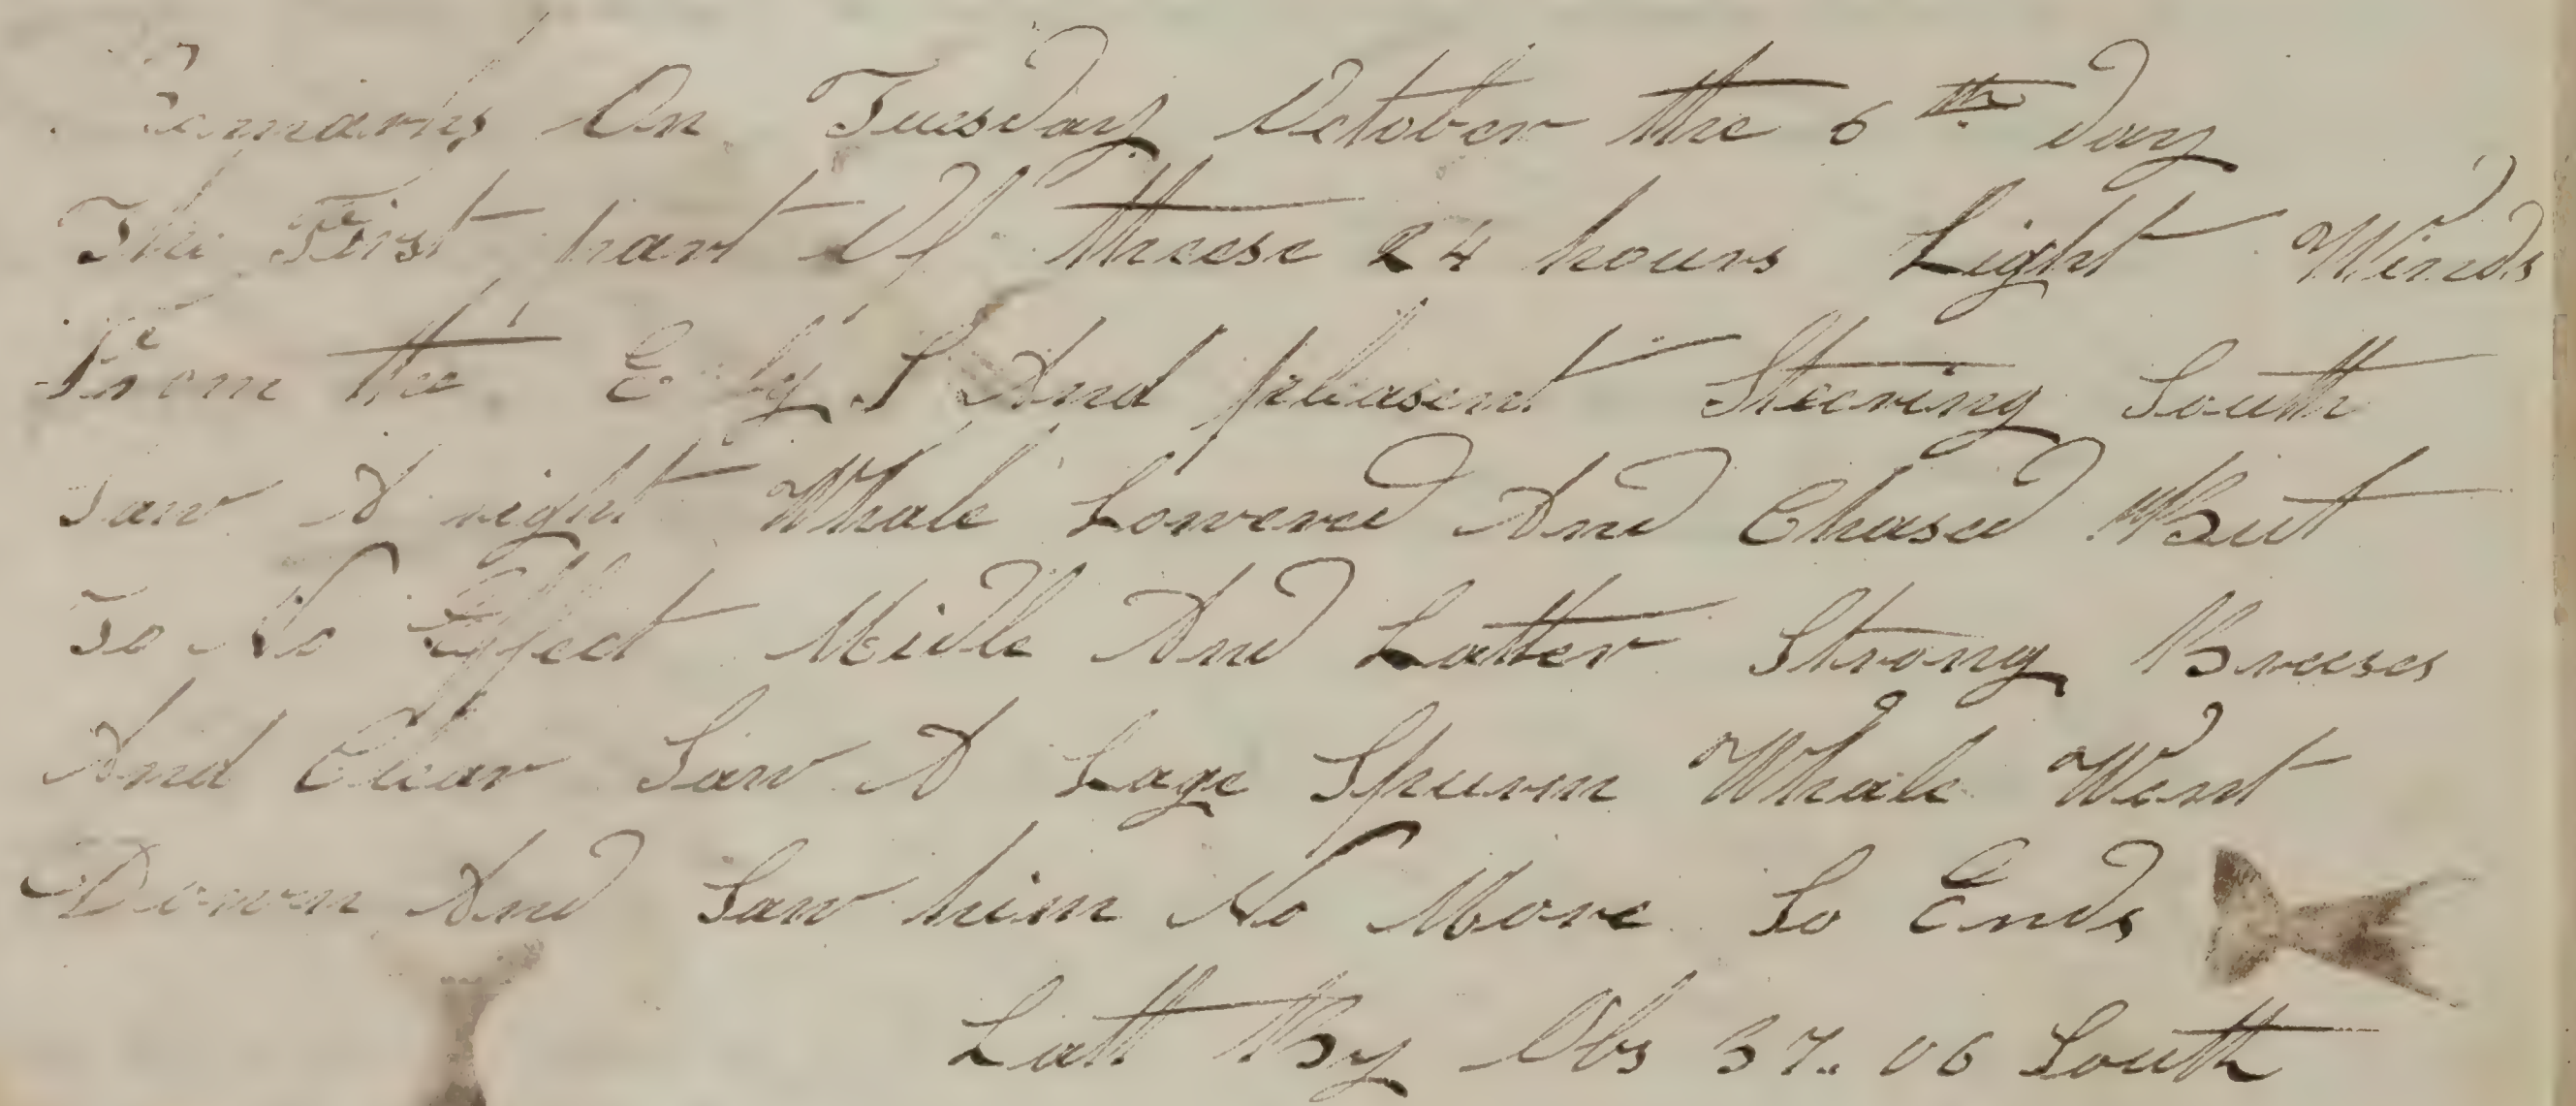 Remarks On Tuesday October the 6th day
The First part Of theese 24 hours Light Winds
From the E by S And pleasent Steering South
Saw A right Whale Lowered And Chased But
To No Effect Midle And Latter Strong Breeses
And Clear Saw A Lage Spurm Whale Went
Down And Saw him No More So Ends
Latt By Obs 37.. 06 South